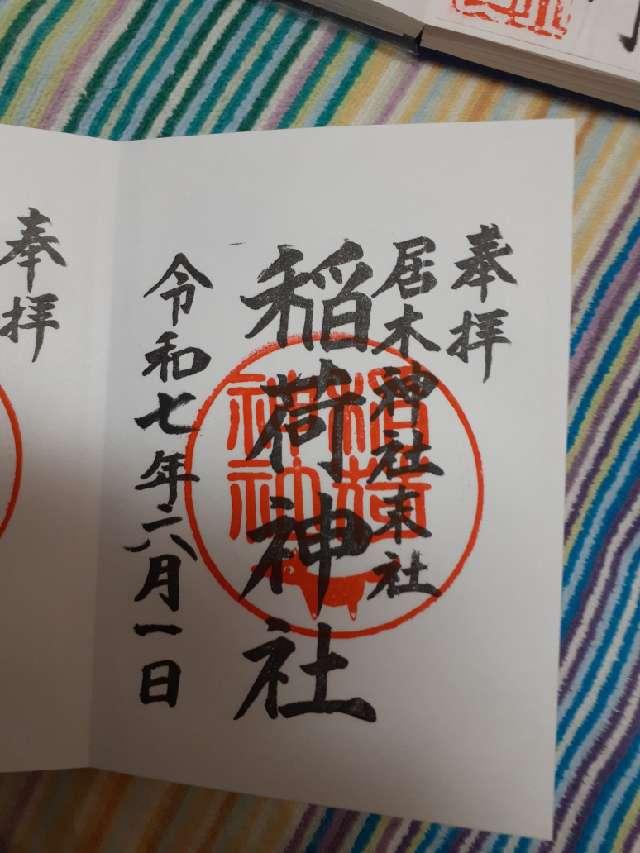 奉拝
居木神社末社
稲荷神社
令和七年六月一日
奉拝